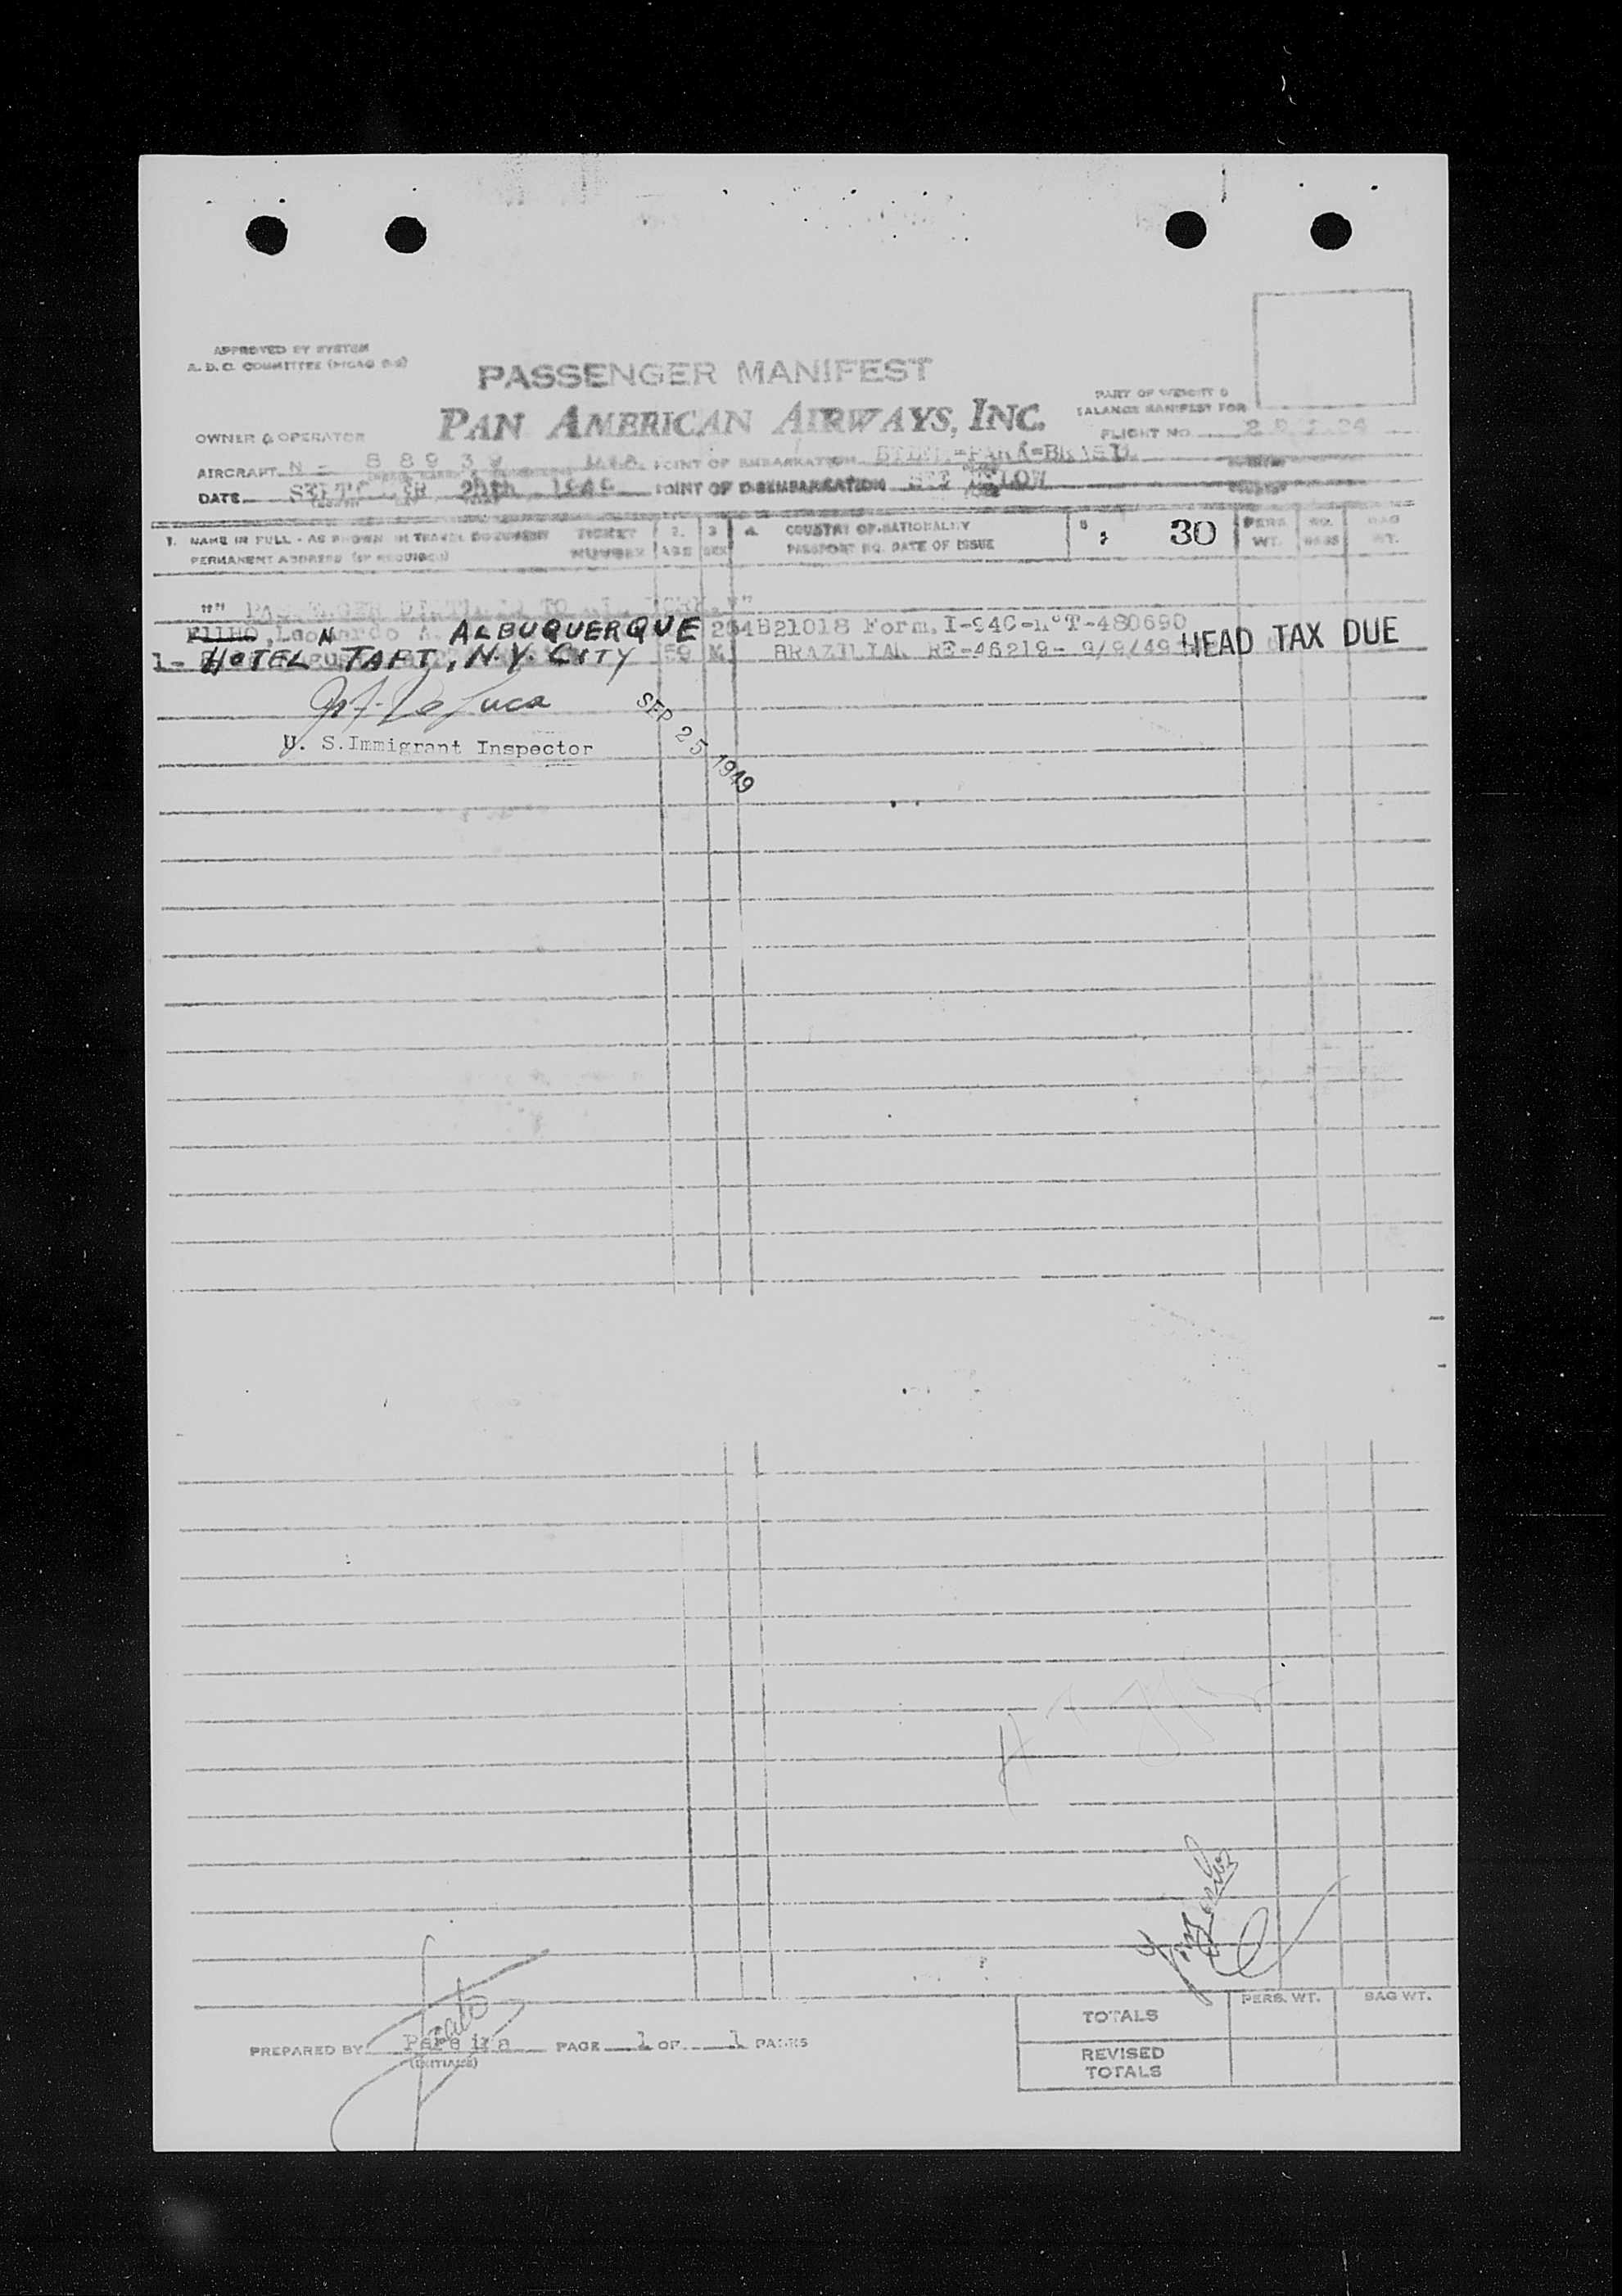 APPROVED BY SYSTEM
A. D. C. COMMITTEE
PASSENGER MANIFEST
PAN AMERICAN AIRWAYS, INC.
PART OF WEIGHT &
BALANCE MANIFEST FOR
OWNER & OPERATOR
FLIGHT NO.
AIRCRAFT N - 88939 POINT OF EMBARKATION BELEM-PARÁ-BRASIL
DATE SEPTEMBER 24th 1949 POINT OF DISEMBARKATION SEE BELOW
1. NAME IN FULL - AS SHOWN IN TRAVEL DOCUMENT TICKET 2. 3 4. COUNTRY OF NATIONALITY 5 ; 30 PERS NO. BAG
PERMANENT ADDRESS (IF REQUIRED) NUMBER AGE SEX PASSPORT NO. DATE OF ISSUE WT. BAGS WT.
"" PASSENGER DESTINED TO
FILHO, Leonardo A. ALBUQUERQUE 254B21018 Form. I-94C-nºT-480690
1- HOTEL TAFT, N.Y. CITY 59 M. BRAZILIAN RE-46219- 9/9/49 HEAD TAX DUE
De Luca
U. S. Immigrant Inspector
SEP 25 1949
TOTALS PERS. WT. BAG WT.
PREPARED BY Pereira PAGE 1 OF 1 PAGES
(INITIALS)
REVISED
TOTALS